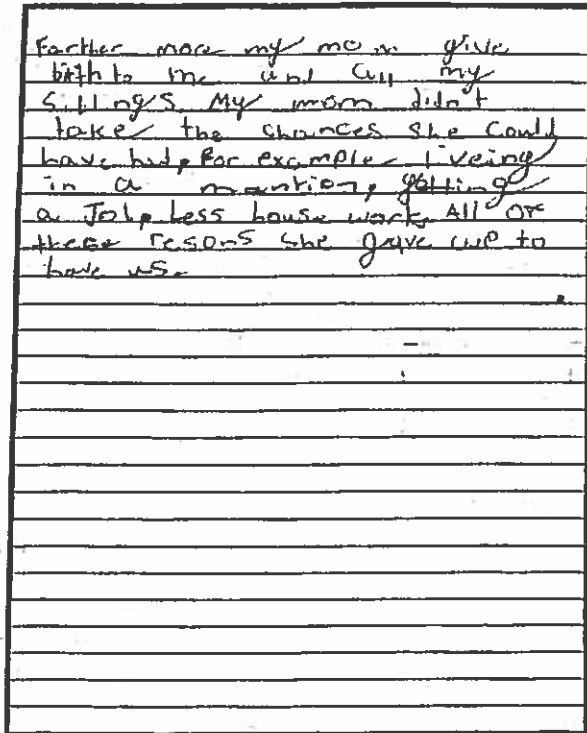 Farther more my mom give
birth to me and all my
sillings. My mom didn't
take the chances she could
have had, for example liveing
in a mantion, getting
a Job, Less house work. All of
these resons she gave up to
have us.